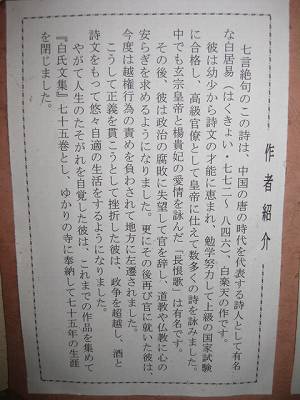 作者紹介
七言絶句のこの詩は、中国の唐の時代を代表する詩人として有名
な白居易（はくきょい・七七二〜八四六）、白楽天の作です。
彼は幼少から詩文の才能に恵まれ、勉学努力して上級の国家試験
に合格し、高級官僚として皇帝に仕えて数多くの詩を詠みました。
中でも玄宗皇帝と楊貴妃の愛情を詠んだ「長恨歌」は有名です。
その後、彼は政治の腐敗に失望して官を辞し、道教や仏教に心の
安らぎを求めるようになりました。更にその後再び官に就いた彼は、
今度は越権行為の責めを負わされて地方に左遷されました。
こうして正義を貫こうとして挫折した彼は、政争を超越し、酒と
詩文をもって悠々自適の生活をするようになりました。
やがて人生のたそがれを自覚した彼は、これまでの作品を集めて
『白氏文集』七十五巻とし、ゆかりの寺に奉納して七十五年の生涯
を閉じました。